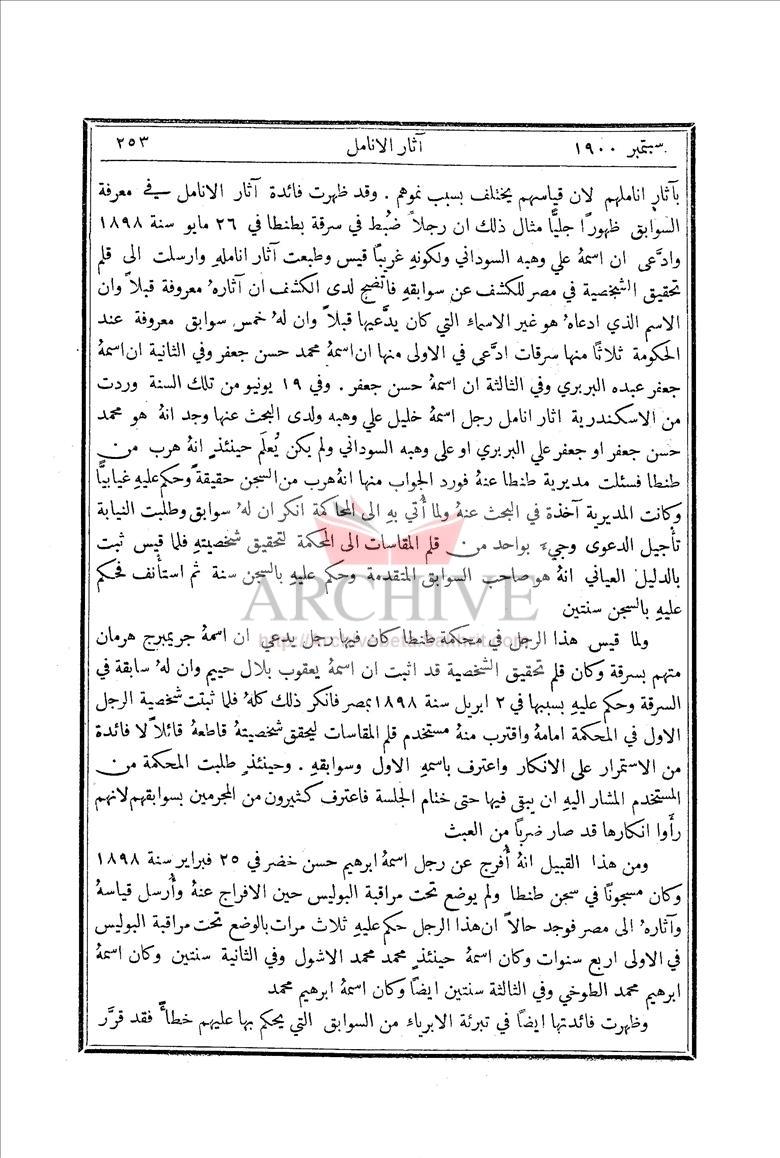 سبتمبر ١٩٠٠ آثار الانامل ٢٥٣
بآثار اناملهم لان قياسهم يختلف بسبب نموهم . وقد ظهرت فائدة آثار الانامل في معرفة
السوابق ظهورًا جليًّا مثال ذلك ان رجلاً ضُبط في سرقة بطنطا في ٢٦ مايو سنة ١٨٩٨
وادَّعى ان اسمهُ علي وهبه السوداني ولكونهِ غريبًا قيس وطبعت آثار اناملهِ وارسلت الى قلم
تحقيق الشخصية في مصر للكشف عن سوابقهِ فاتضح لدى الكشف ان آثارهُ معروفة قبلاً وان
الاسم الذي ادعاهُ هو غير الاسماء التي كان يدَّعيها قبلاً وان لهُ خمس سوابق معروفة عند
الحكومة ثلاثًا منها سرقات ادَّعى في الاولى منها ان اسمهُ محمد حسن جعفر وفي الثانية ان اسمهُ
جعفر عبده البربري وفي الثالثة ان اسمهُ حسن جعفر . وفي ١٩ يونيو من تلك السنة وردت
من الاسكندرية اثار انامل رجل اسمهُ خليل علي وهبه ولدى البحث عنها وجد انهُ هو محمد
حسن جعفر او جعفر علي البربري او على وهبه السوداني ولم يكن يُعلَم حينئذٍ انهُ هرب من
طنطا فسئلت مديرية طنطا عنهُ فورد الجواب منها انهُ هرب من السجن حقيقةً وحكم عليهِ غيابيًّا
وكانت المديرية آخذة في البحث عنهُ ولما أُتي بهِ الى المحاكمة انكر ان لهُ سوابق وطلبت النيابة
تأجيل الدعوى وجيءَ بواحد من قلم المقاسات الى المحكمة لتحقيق شخصيتهِ فلما قيس ثبت
بالدليل العياني انهُ هو صاحب السوابق المتقدمة وحكم عليهِ بالسجن سنة ثم استأنف فحكم
ARCHIVE
عليهِ بالسجن سنتين
ولما قيس هذا الرجل في محكمة طنطا كان فيها رجل يدعي ان اسمهُ جريمبرج هرمان
متهم بسرقة وكان قلم تحقيق الشخصية قد اثبت ان اسمهُ يعقوب بلال حييم وان لهُ سابقة في
السرقة وحكم عليهِ بسببها في ٢ ابريل سنة ١٨٩٨ بمصر فانكر ذلك كلهُ فلما ثبتت شخصية الرجل
الاول في المحكمة امامهُ واقترب منهُ مستخدم قلم المقاسات ليحقق شخصيتهُ قاطعهُ قائلاً لا فائدة
من الاستمرار على الانكار واعترف باسمهِ الاول وسوابقهِ . وحينئذٍ طلبت المحكمة من
المستخدم المشار اليهِ ان يبقى فيها حتى ختام الجلسة فاعترف كثيرون من المجرمين بسوابقهم لانهم
رأَوا انكارها قد صار ضربًا من العبث
ومن هذا القبيل انهُ أُفرج عن رجل اسمهُ ابرهيم حسن خضر في ٢٥ فبراير سنة ١٨٩٨
وكان مسجونًا في سجن طنطا ولم يوضع تحت مراقبة البوليس حين الافراج عنهُ وأُرسل قياسهُ
وآثارهُ الى مصر فوجد حالاً ان هذا الرجل حكم عليهِ ثلاث مرات بالوضع تحت مراقبة البوليس
في الاولى اربع سنوات وكان اسمهُ حينئذٍ محمد محمد الاشول وفي الثانية سنتين وكان اسمهُ
ابرهيم محمد الطوخي وفي الثالثة سنتين ايضًا وكان اسمهُ ابرهيم محمد
وظهرت فائدتها ايضًا في تبرئة الابرياء من السوابق التي يحكم بها عليهم خطأً فقد قرَّر